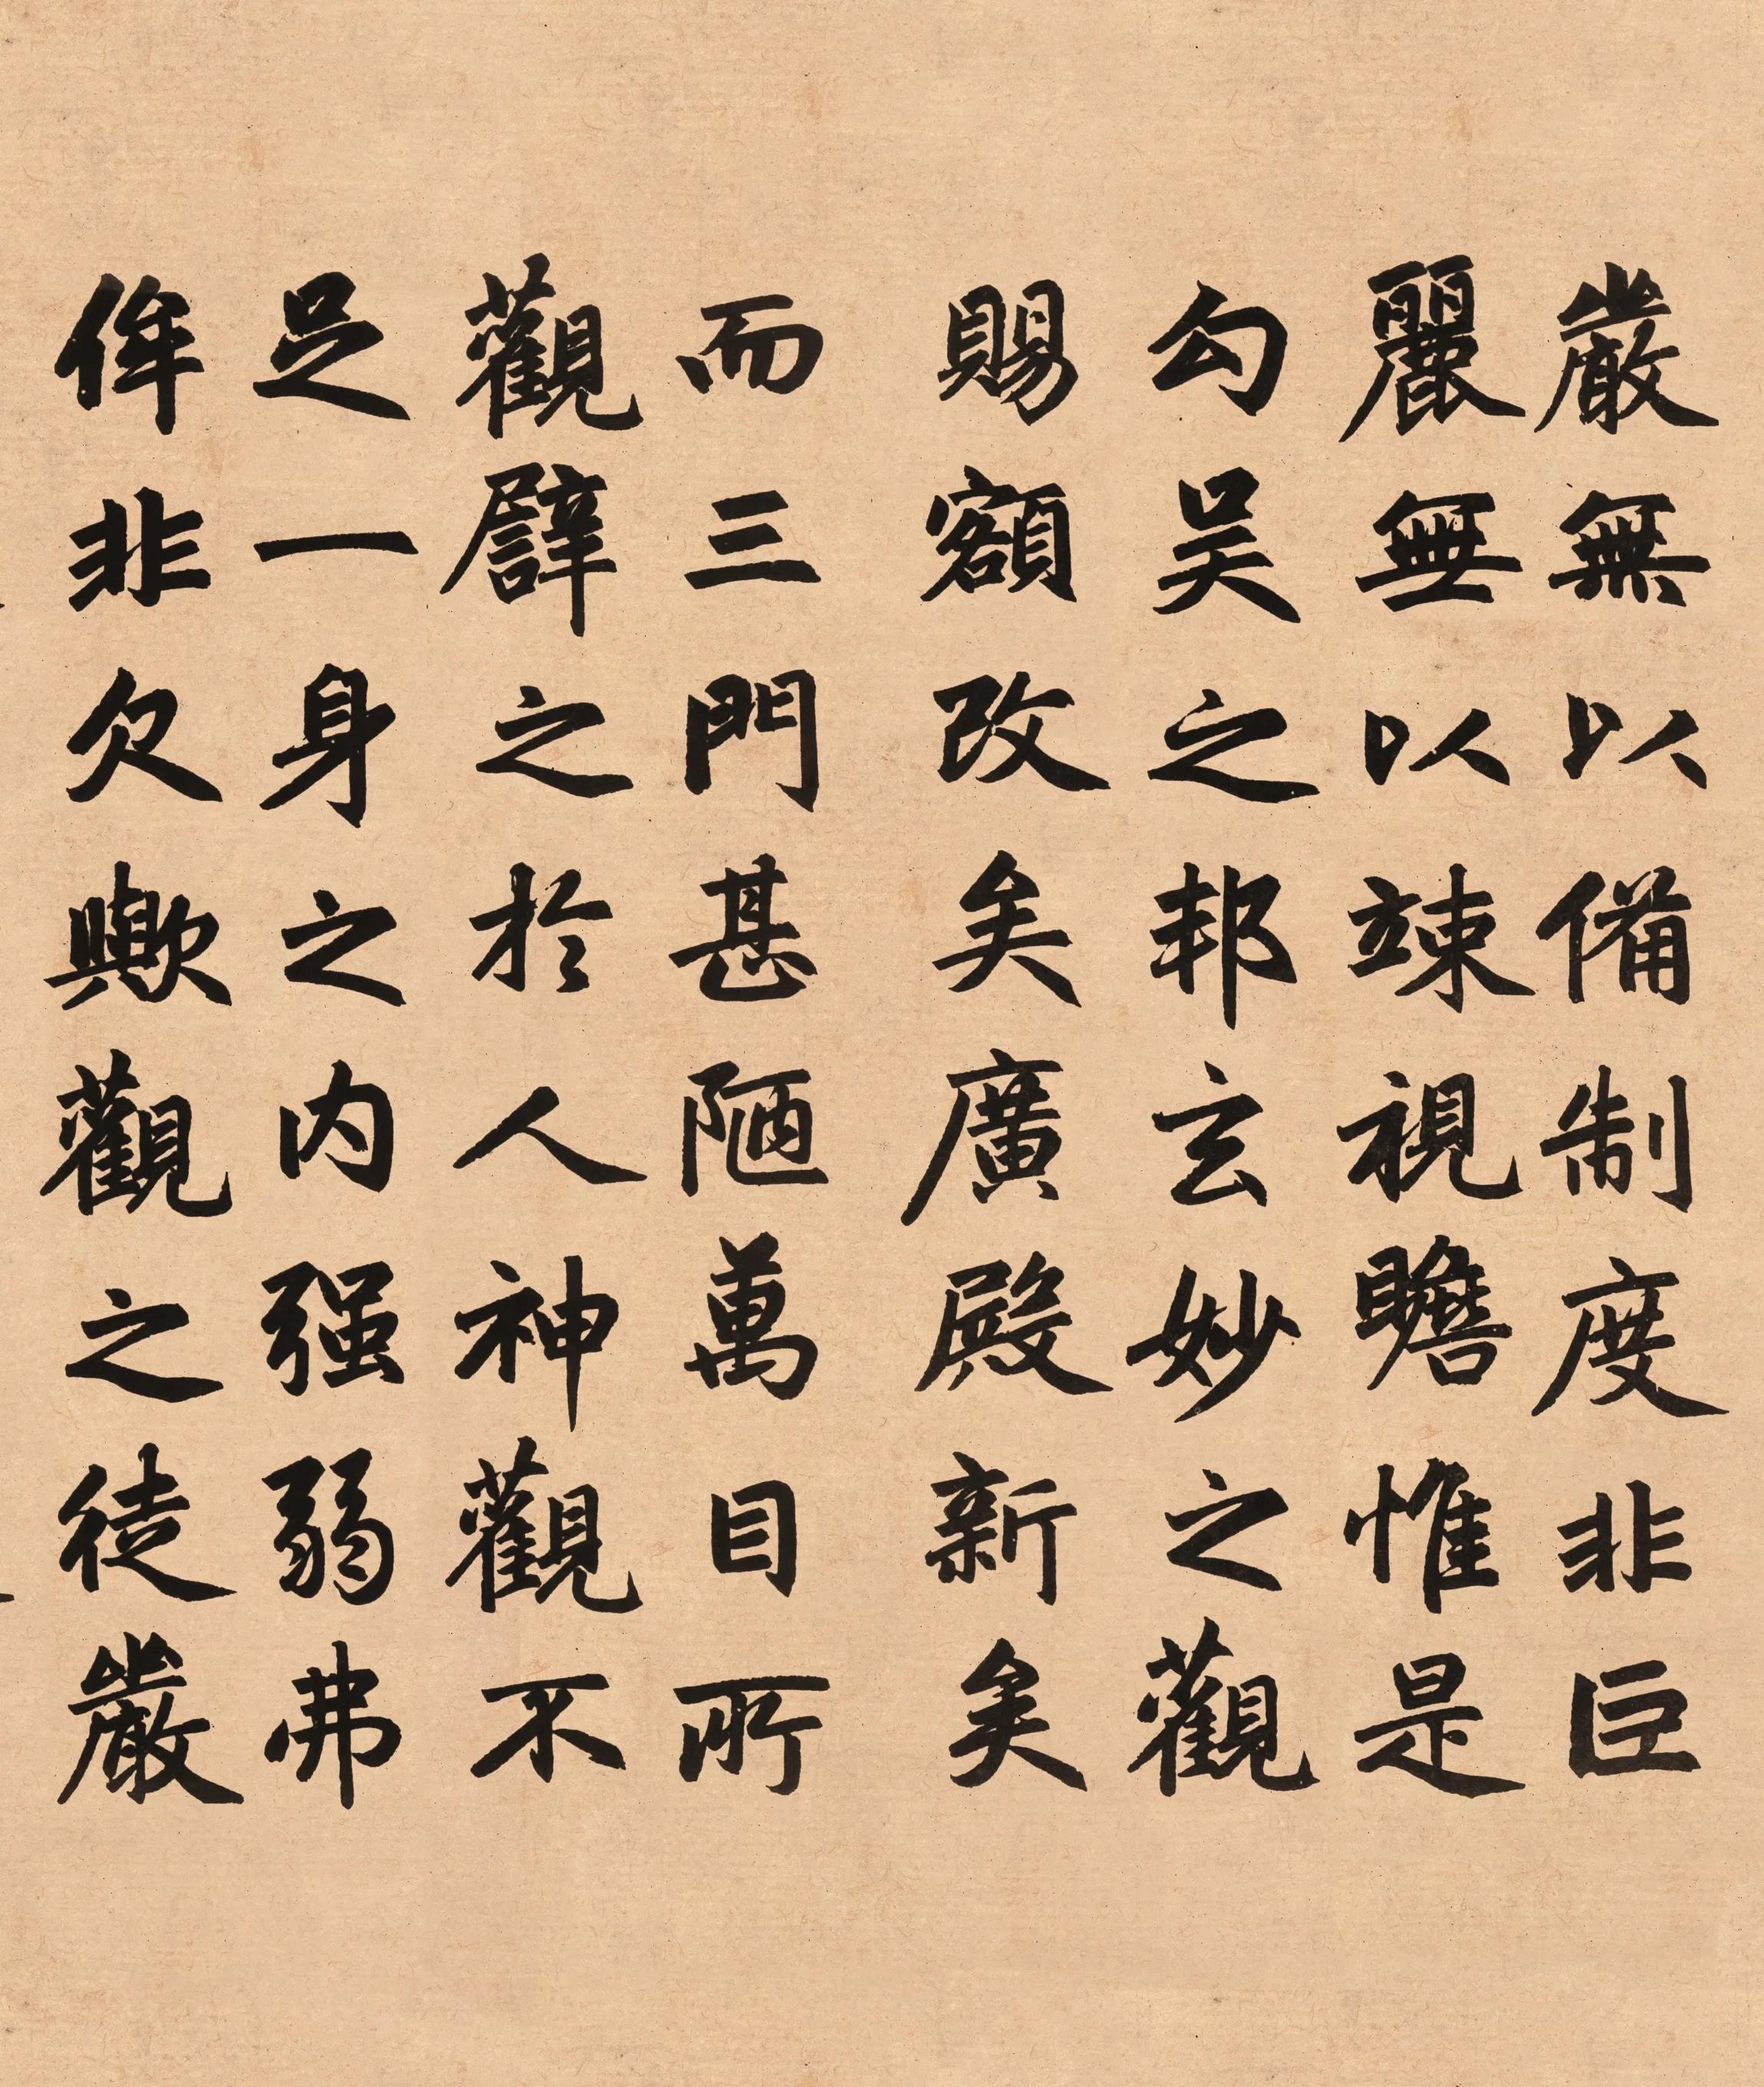 嚴無以備制度非巨
麗無以竦視瞻惟是
勾吴之邦玄妙之觀
賜額改矣廣殿新矣
而三門甚陋萬目所
觀譬之於人神觀不
足一身之内强弱弗
侔非欠歟觀之徒嚴